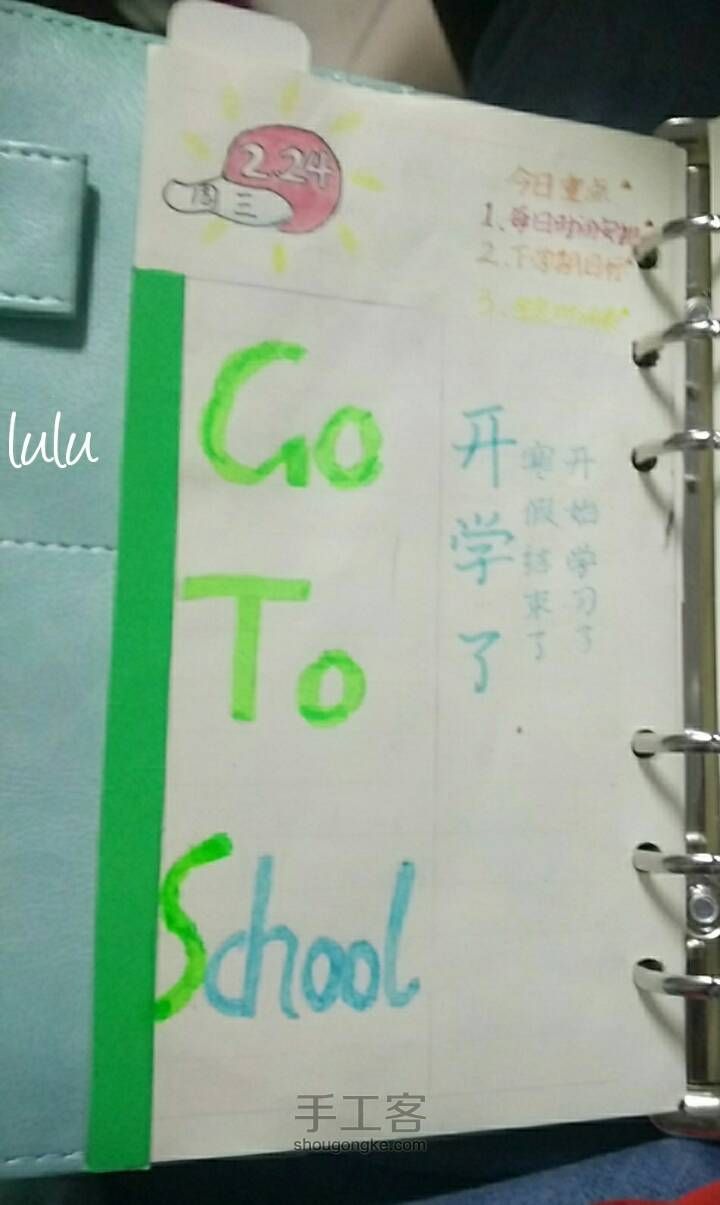 2.24
周三
今日重点
1. 每日时间安排
2. 下学期目标
3.
lulu
Go
To
School
开学了
寒假结束了
开始学习了
手工客
shougongke.com